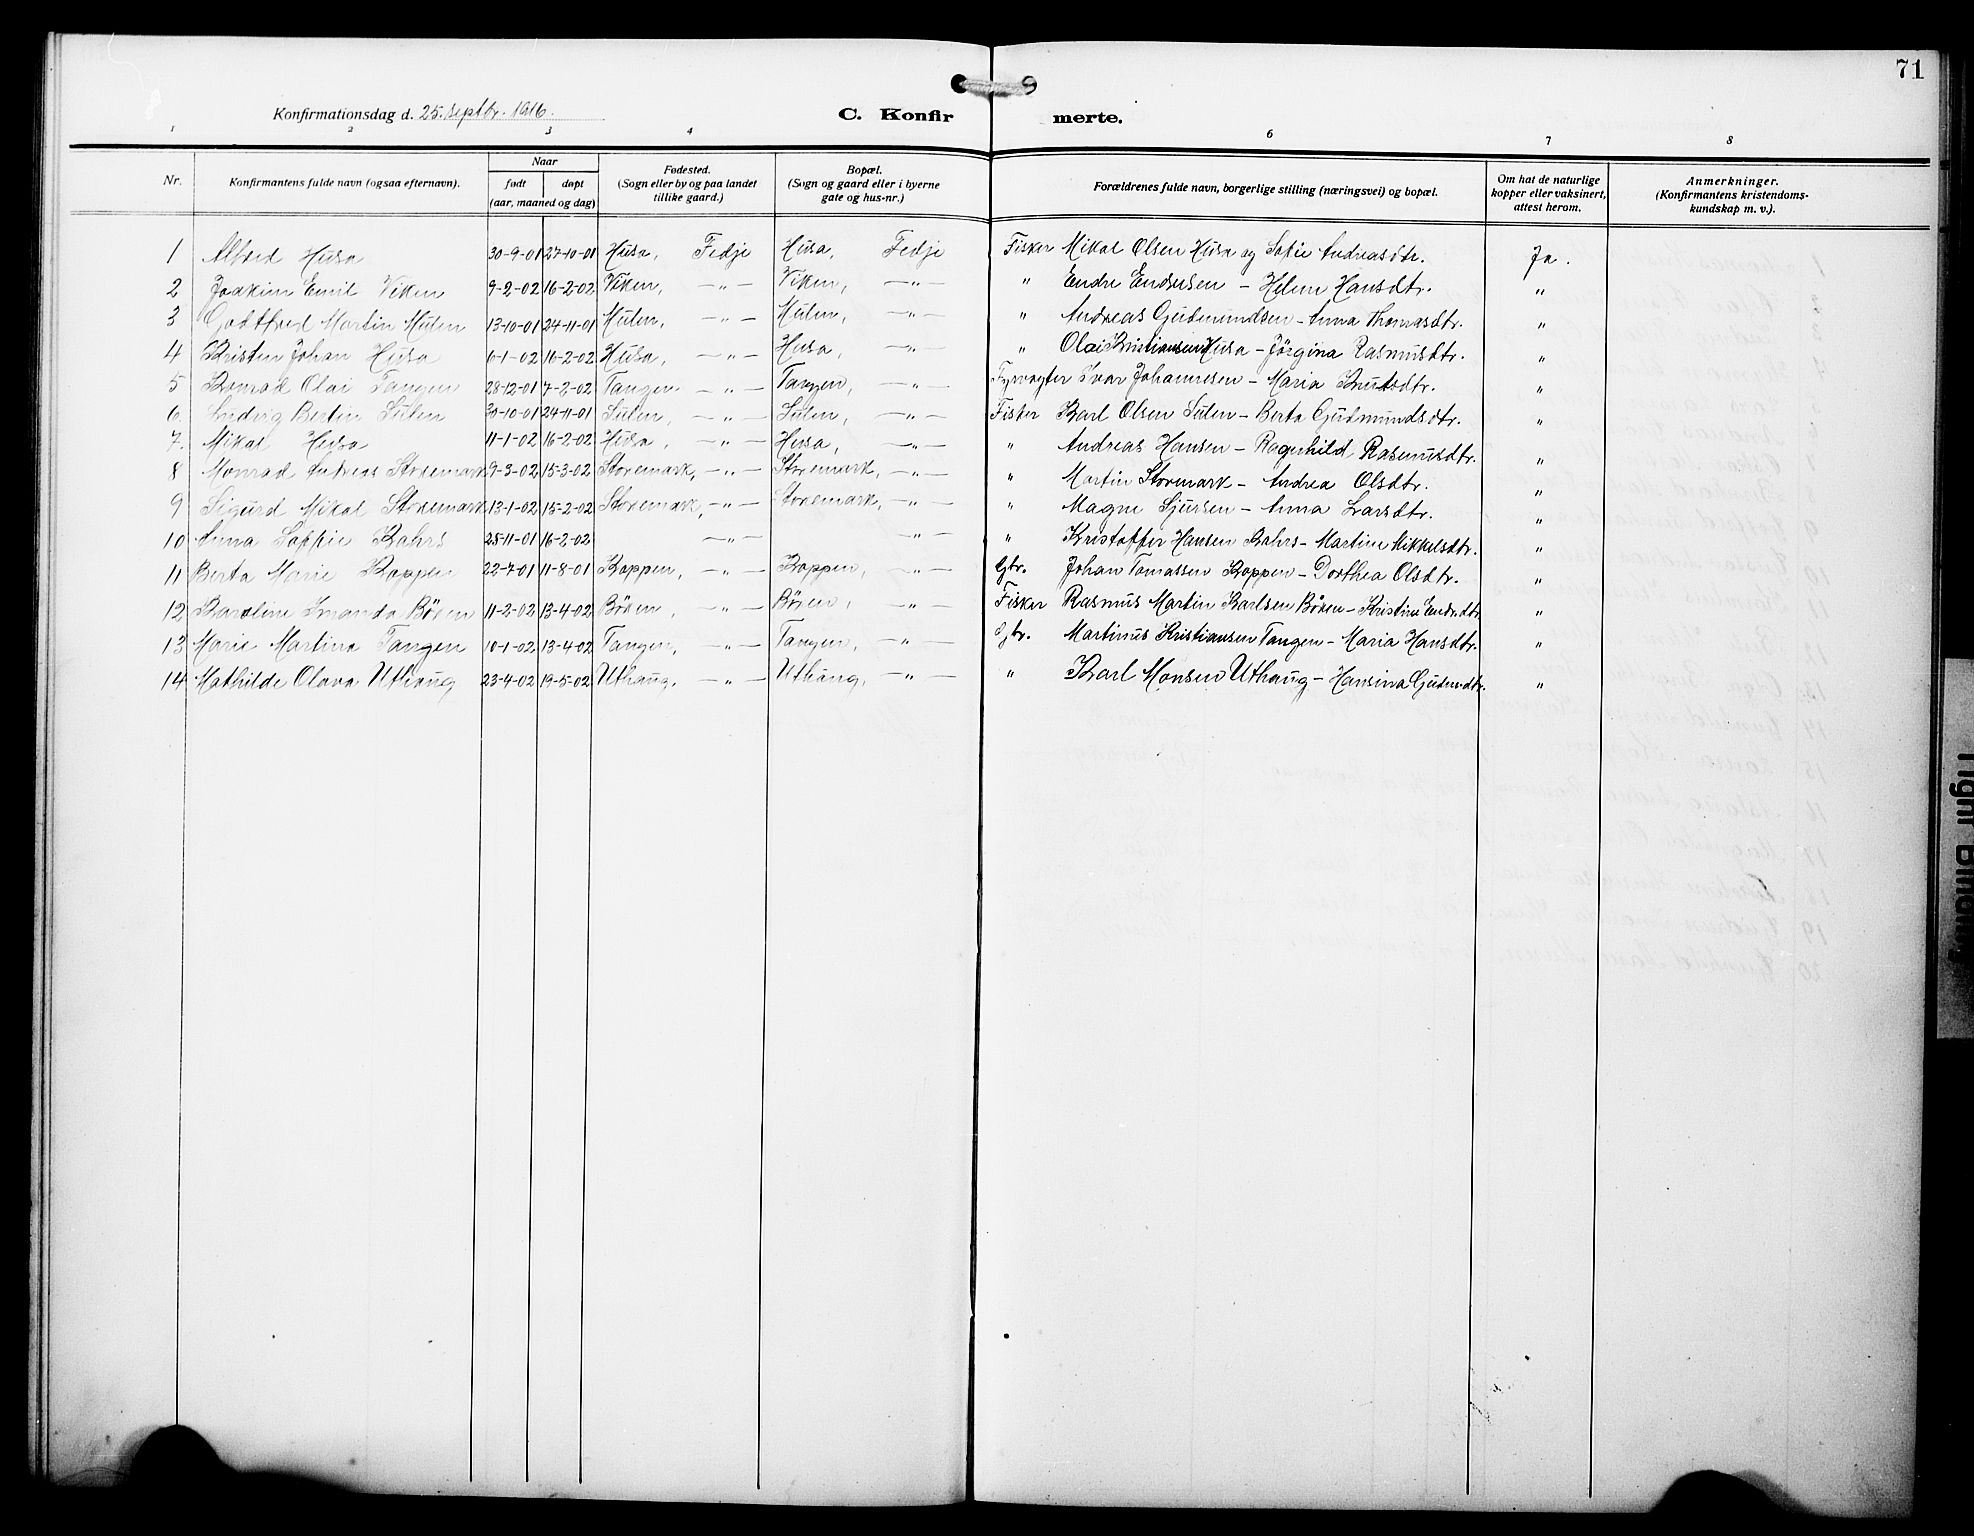 71
Konfirmationsdag d. 25. septbr. 1916.
C. Konfirmerte.
1 2 3 4 5 6 7 8
Nr. Konfirmantens fulde navn (ogsaa efternavn). Naar født døpt (aar, maaned og dag) Fødested. (Sogn eller by og paa landet tillike gaard.) Bopæl. (Sogn og gaard eller i byerne gate og hus-nr.) Forældrenes fulde navn, borgerlige stilling (næringsvei) og bopæl. Om hat de naturlige kopper eller vaksinert, attest herom. Anmerkninger. (Konfirmantens kristendomskundskap m. v.).
1 Alfred Husa 30-9-01 27-10-01 Husa, Fedje Husa, Fedje Fisker Mikal Olsen Husa og Sofie Andreasdtr. Ja.
2 Joakim Emil Viken 9-2-02 16-2-02 Viken, —"— Viken, —"— " Endre Endresen – Helene Hansdtr. "
3 Godtfred Martin Mulen 13-10-01 24-11-01 Mulen, —"— Mulen, —"— " Andreas Gudmundsen – Anna Thomasdtr. "
4 Kristen Johan Husa 6-1-02 16-2-02 Husa, —"— Husa, —"— " Olai Kristiansen Husa – Jørgina Rasmusdtr. "
5 Konrad Olai Tangen 28-12-01 7-2-02 Tangen —"— Tangen, —"— Fyrvogter Ivar Johannesen – Maria Knutsdtr. "
6 Ludvig Bertin Sulen 30-10-01 24-11-01 Sulen, —"— Sulen, —"— Fisker Karl Olsen Sulen – Berta Gudmundsdtr. "
7. Mikal Husa 11-1-02 16-2-02 Husa, —"— Husa, —"— " Andreas Hansen – Ragnhild Rasmusdtr. "
8 Monrad Andreas Storemark 9-3-02 15-3-02 Storemark, —"— Storemark, —"— " Martin Storemark – Andrea Olsdtr. "
9 Sigurd Mikal Storemark 13-1-02 15-2-02 Storemark, —"— Storemark, —"— " Magne Sjursen – Anna Larsdtr. "
10 Anna Soppie Bahrs 28-11-01 16-2-02 —"— —"— " Kristoffer Hansen Bahrs – Martine Mikkelsdtr. "
11 Berta Marie Koppen 22-7-01 11-8-01 Koppen, —"— Koppen, —"— Gbr. Johan Tomassen Koppen – Dorthea Olsdtr. "
12 Karoline Amanda Børen 11-2-02 13-4-02 Børen, —"— Børen, —"— Fisker Rasmus Martin Karlsen Børen – Kristine Endredtr. "
13 Marie Martina Tangen 10-1-02 13-4-02 Tangen, —"— Tangen, " — Gbr. Martinus Kristiansen Tangen – Maria Hansdtr. "
14 Mathilde Olava Uthaug 23-4-02 19-5-02 Uthaug, —"— Uthaug, —"— " Karl Monsen Uthaug – Hansina Gudm.dtr. "